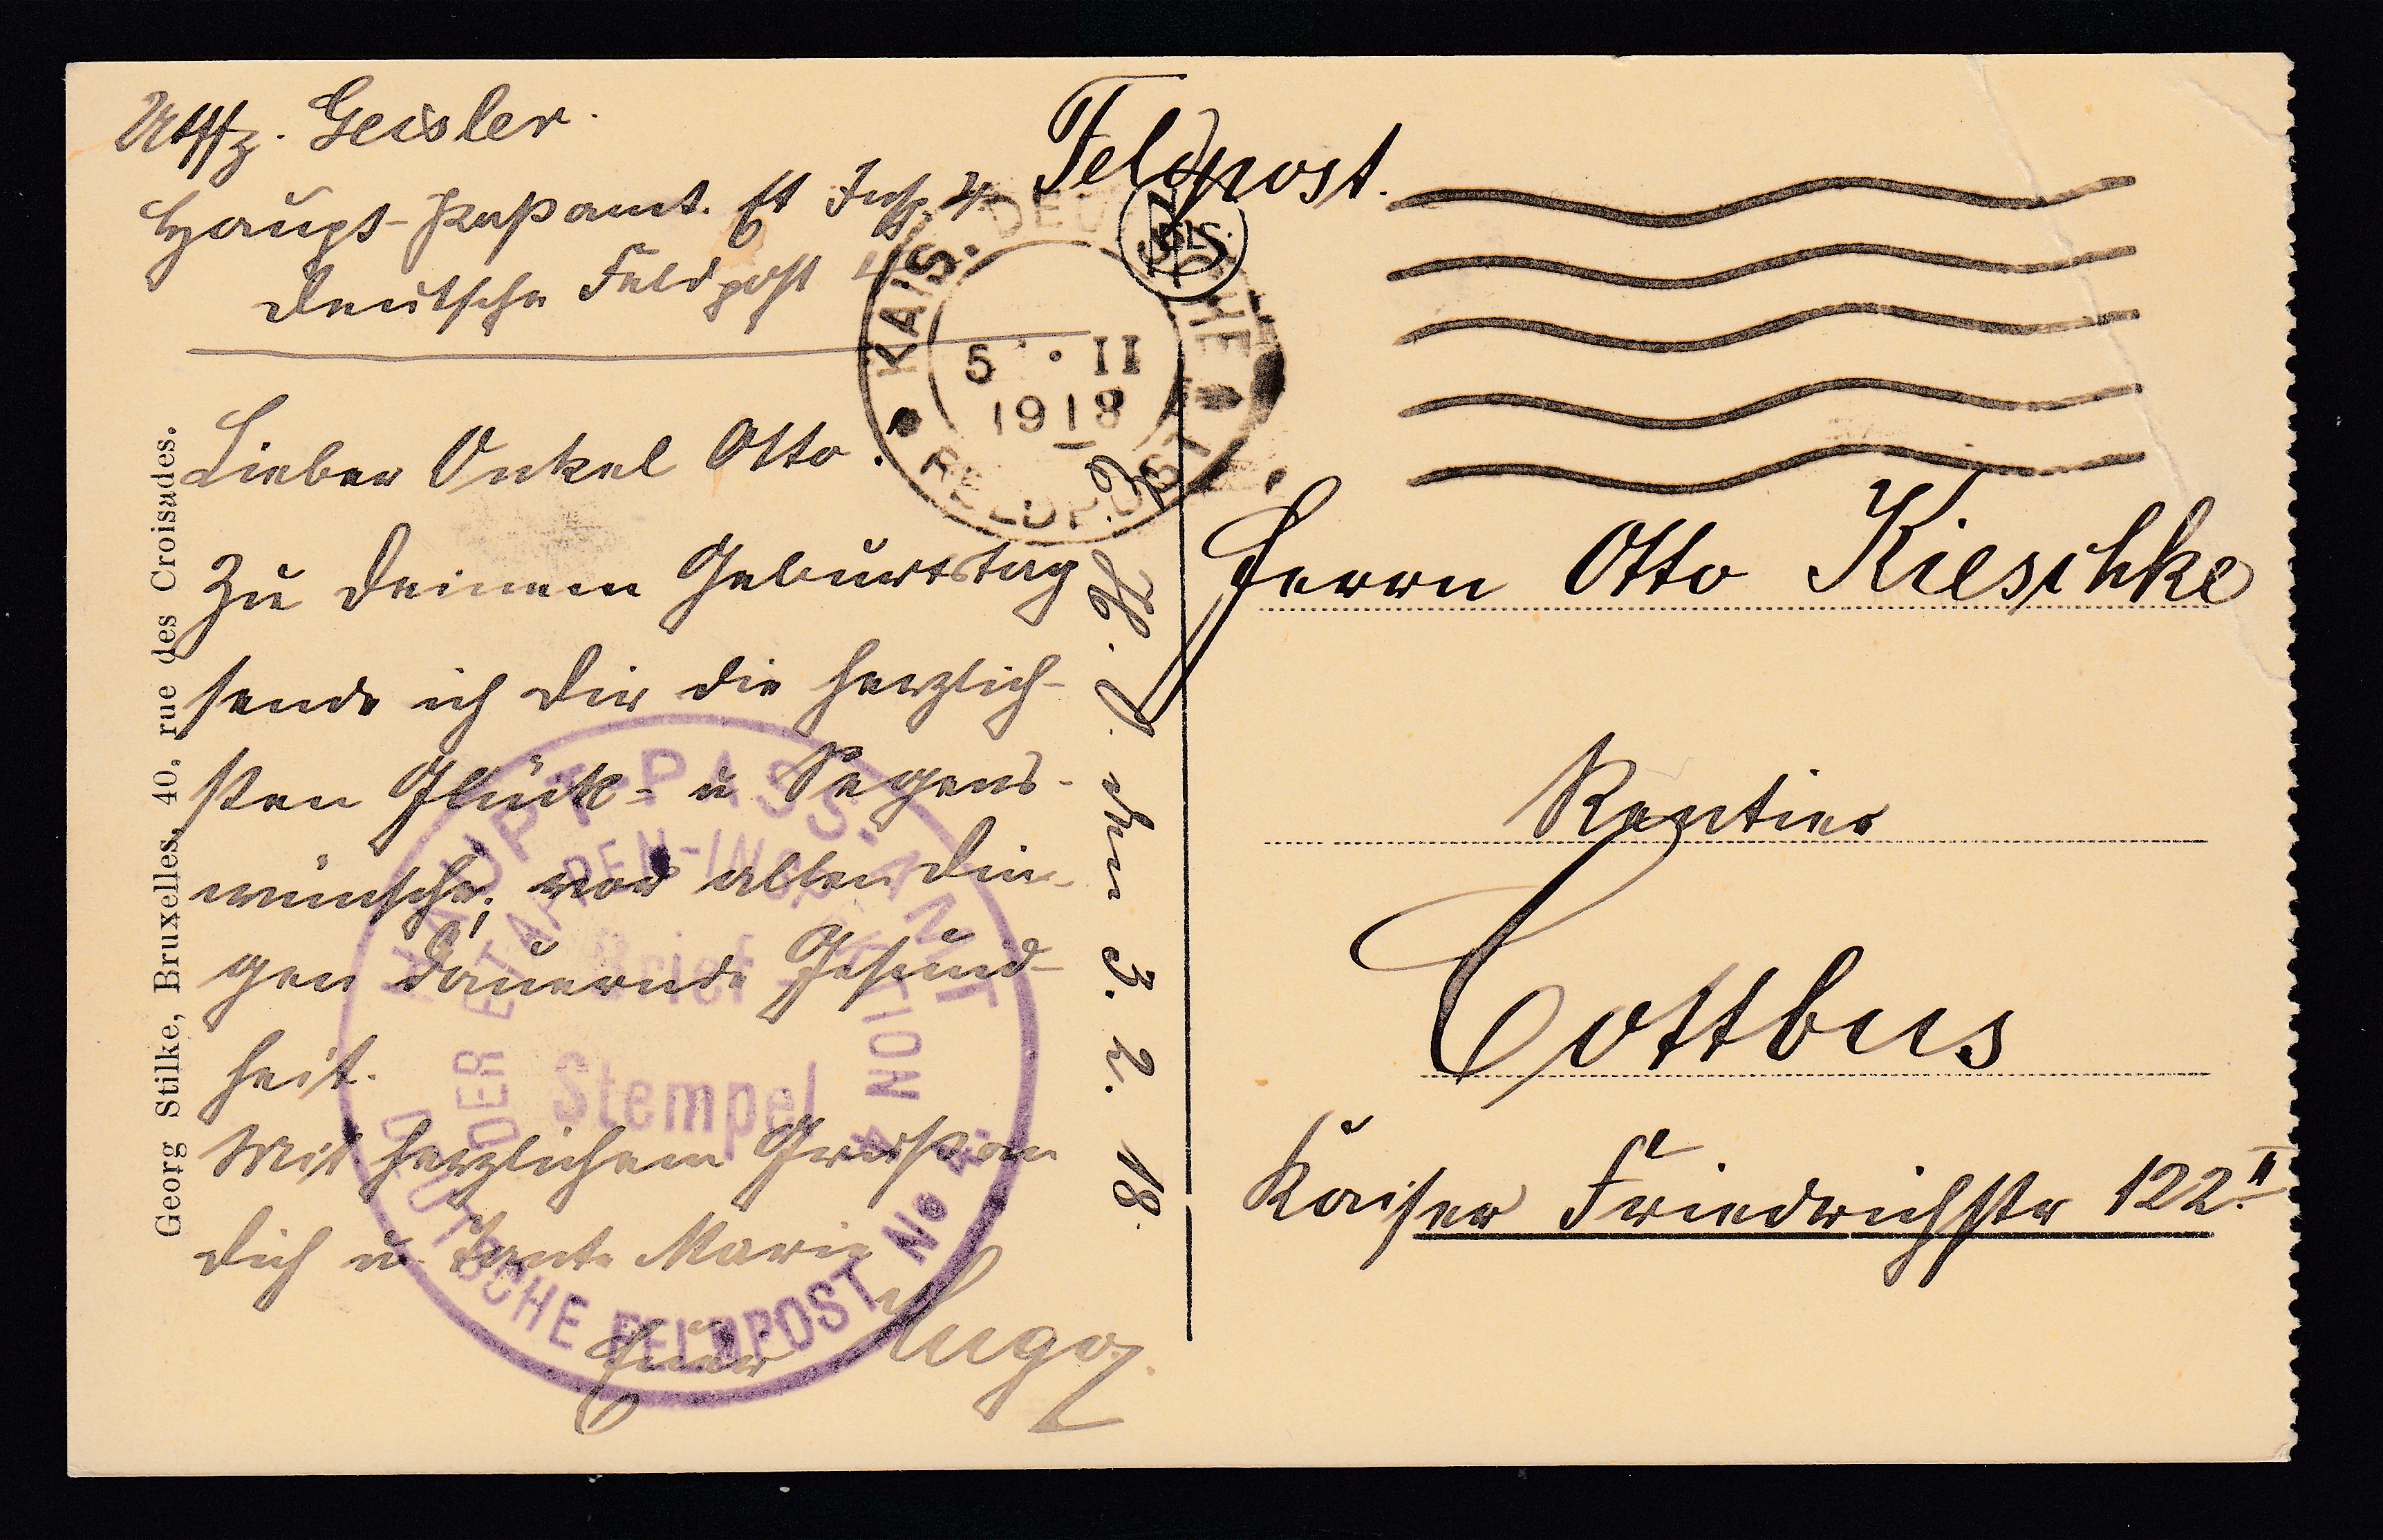 Uffz. Geisler.
Haupt-Paßamt. Et Insp. 4
Deutsche Feldpost 4
Feldpost.
KAIS. DEUTSCHE FELDPOST
5 II
1918
Lieber Onkel Otto.
Zu Deinem Geburtstag
sende ich Dir die herzlich-
sten Glück- u Segens-
wünsche, vor allen Din-
gen dauernde Gesund-
heit.
Mit herzlichem Gruß an
Dich u. Tante Marie
Euer Hugo.
H. J. den 3. 2. 18.
Georg Stilke, Bruxelles, 40, rue des Croisades.
HAUPT-PASS-AMT
DER ETAPPEN-INSPEKTION 4
Brief-
Stempel
DEUTSCHE FELDPOST No 4.
Herrn Otto Kieschke
Rentier
Cottbus
Kaiser Friedrichstr 122 II